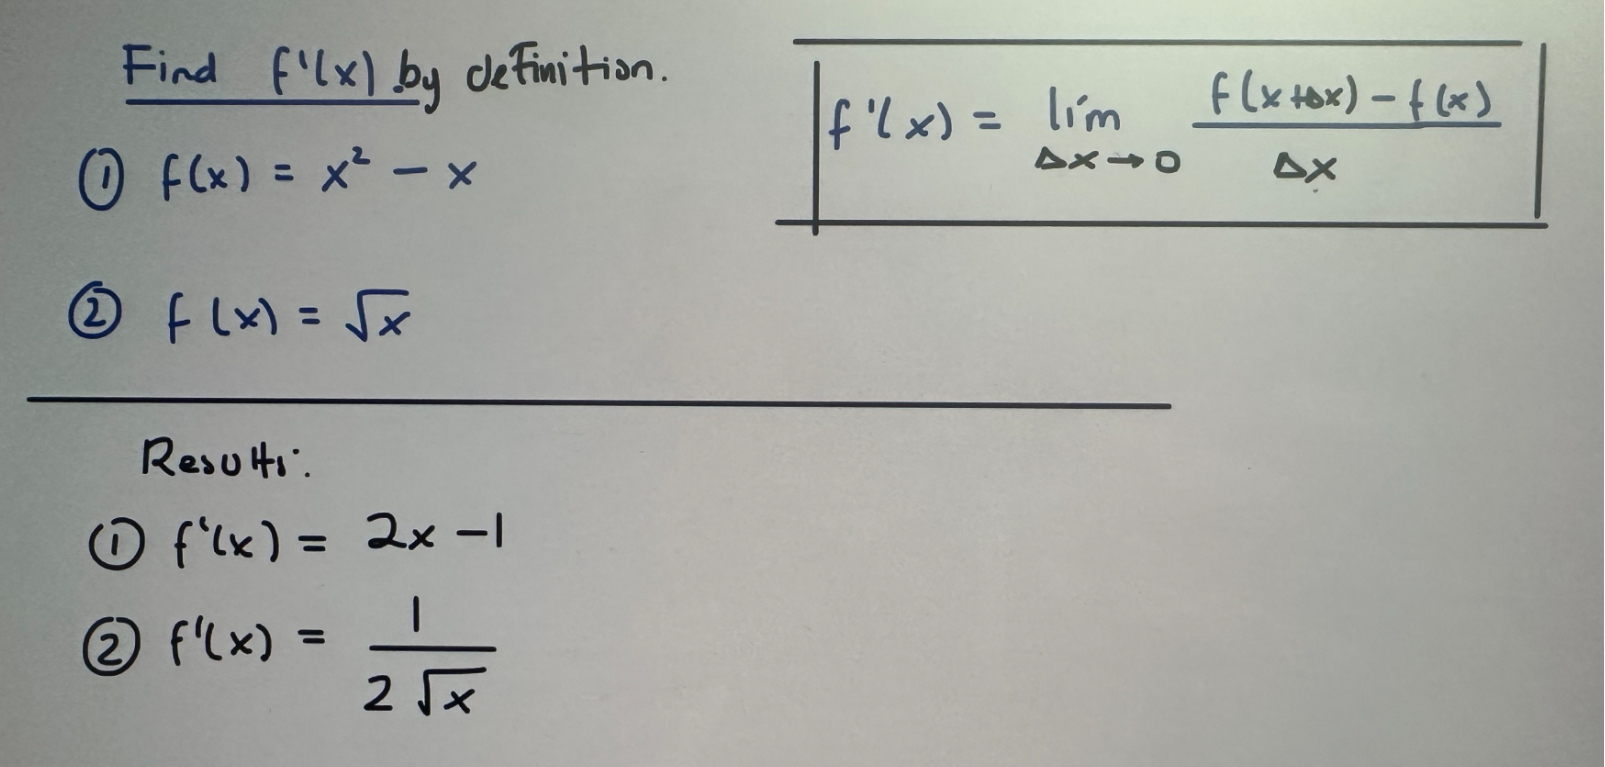 Find f'(x) by definition.
f'(x) = lím Δx→0 f(x+Δx) - f(x) / Δx
① f(x) = x² - x
② f(x) = √x
Results:
① f'(x) = 2x - 1
② f'(x) = 1 / 2√x